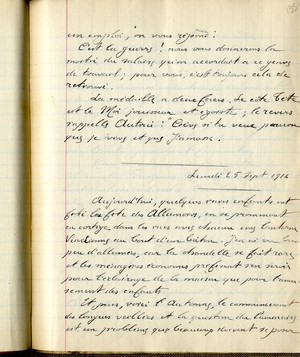 un emploi, on vous répond:
C'est la guerre! nous vous donnerons la
moitié du salaire qu'on accordait à ce genre
de travail; pour vous, c'est toujours cela de
retrouvé.
La médaille a deux faces. Le côté
est le Moi jouisseur et égoïste; le revers
rappelle Autrui: "
que je vous et que j'amasse.
Lundi le 5 Sept 1916
Aujourd'hui, quelques-uns enfants ont
fêté la fête des Allumoirs, en se promenant
en cortège dans les rues avec chacun une lanterne
au bout d'un bâton. J'en ai vu
peu d'allumoirs, car la chandelle se fait rare
et les ménagères économes préfèrent s'en servir
pour l'éclairage de la maison que pour l'amu-
sement des enfants.
Et puis, voici l'Automne, le commencement
des longues veillées et la question du luminaire
est un problème que beaucoup doivent se poser